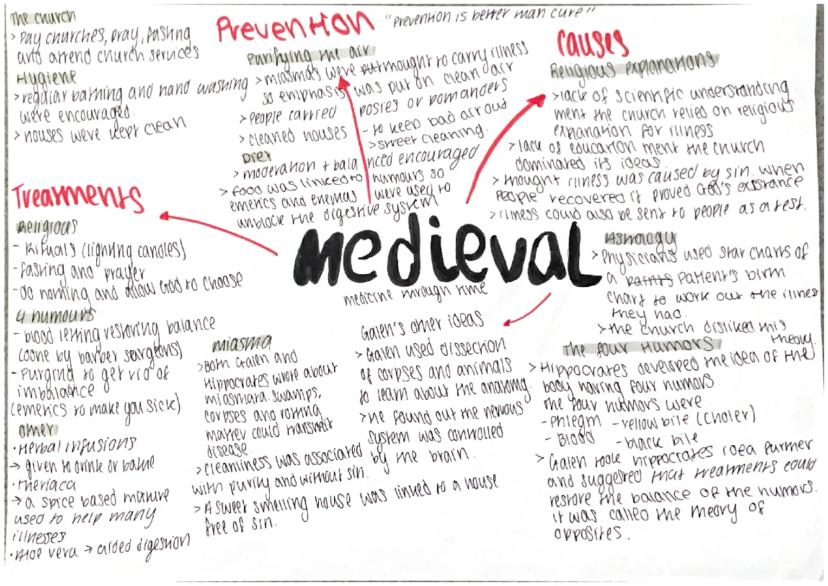 The church
> Pay churches, pray, fasting
and attend church services
Hygiene
> regular bathing and hand washing
were encouraged.
> houses were kept clean
Prevention
"Prevention is better than cure"
Purifying the air
> miasmas were thought to carry illness
so emphasis was put on clean air
> people carried posies or pomanders
- to keep bad air out
> cleaned houses > street cleaning.
Diet
> moderation + balanced encouraged
> food was linked to humours so
emetics and enemas were used to
unblock the digestive system
Causes
Religious explanations
> lack of scientific understanding
ment the church relied on religious
explanation for illness
> lack of education ment the church
dominated its ideas.
> thought illness was caused by sin. when
people recovered it proved God's existance
> illness could also be sent to people as a test.
Treatments
Religious
- Rituals (lighting candles)
- fasting and prayer
- do nothing and allow God to choose
4 humours
- blood letting restoring balance
(done by barber surgeons)
- Purging to get rid of
imbalance
(emetics to make you sick)
Other
• Herbal infusions
→ given to drink or bathe
• theriaca
→ a spice based mixture
used to help many
illnesses
• Aloe vera → aided digestion
Medieval
medicine through time
miasma
> Both Galen and
Hippocrates wrote about
miasmata swamps,
corpses and rotting
matter could transmit
disease
> cleanliness was associated
with purity and without sin.
> A sweet smelling house was linked to a house
free of sin.
Galen's other ideas
> Galen used dissection
of corpses and animals
to learn about the anatomy.
> He found out the nervous
system was controlled
by the brain.
Astrology
> Physicians used star charts of
a patient's birth
chart to work out the illness
they had.
> the church disliked this
theory.
The four Humors
> Hippocrates developed the idea of the
body having four humors
the four humors were
- Phlegm - yellow bile (choler)
- Blood - black bile
> Galen took hippocrates idea further
and suggested that treatments could
restore the balance of the humors.
it was called the theory of
opposites.